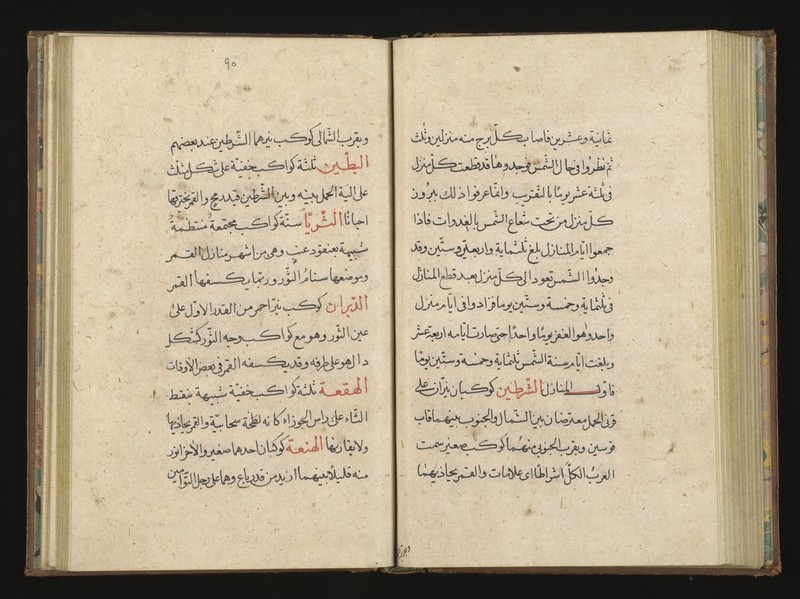 ثمانية وعشرين فاصاب كل برج منه منزلين وثلث
ثم نظروا في حال الشمس فوجدوها قد قطعت كل منزل
في ثلثة عشر يوما بالتقريب وانما عرفوا ذلك ببروز
كل منزل من تحت شعاع الشمس بالغدوات فاذا
جمعوا ايام المنازل بلغ ثلثماية واربعة وستين وقد
وجدوا الشمس تعود الى كل منزل بعد قطع المنازل
في ثلثماية وخمسة وستين يوما فزادوا في ايام منزل
واحد وهو الغفر يوما واحدا حتى صارت ايامه اربعة عشر
وبلغت ايام سنة الشمس ثلثماية وخمسة وستين يوما
فاول المنازل الشرطين كوكبان نيران على
قرني الحمل معترضان بين الشمال والجنوب بينهما قاب
قوسين وبقرب الجنوبي منهما كوكب صغير سمت
العرب الكل اشراطا اي علامات والقمر يحاذيهما
٩٠
وبقرب الشمالى كوكب نيرهما الشرطين عند بعضهم
البطين ثلثة كواكب خفية على شكل مثلث
على الية الحمل بينه وبين الشرطين قيد رمح والقمر يجتريها
احيانا الثريا ستة كواكب مجتمعة منتظمة
شبيهة بعنقود عنب وهى من اشهر منازل القمر
وموضعها سنام الثور وربما يكسفها القمر
الدبران كوكب نير احمر من القدر الاول على
عين الثور وهو مع كواكب وجه الثور كشكل
دال هو على طرفه وقد يكسفه القمر في بعض الاوقات
الهقعة ثلثة كواكب خفية شبيهة بنقط
الثاء على راس الجوزاء كانه لطخة سحابية والقمر يحاذيها
ولا يقاربها الهنعة كوكبان احدهما صغير والاخر انور
منه قليلا بينهما ازيد من قدر باع وهما على رجل التوأمين